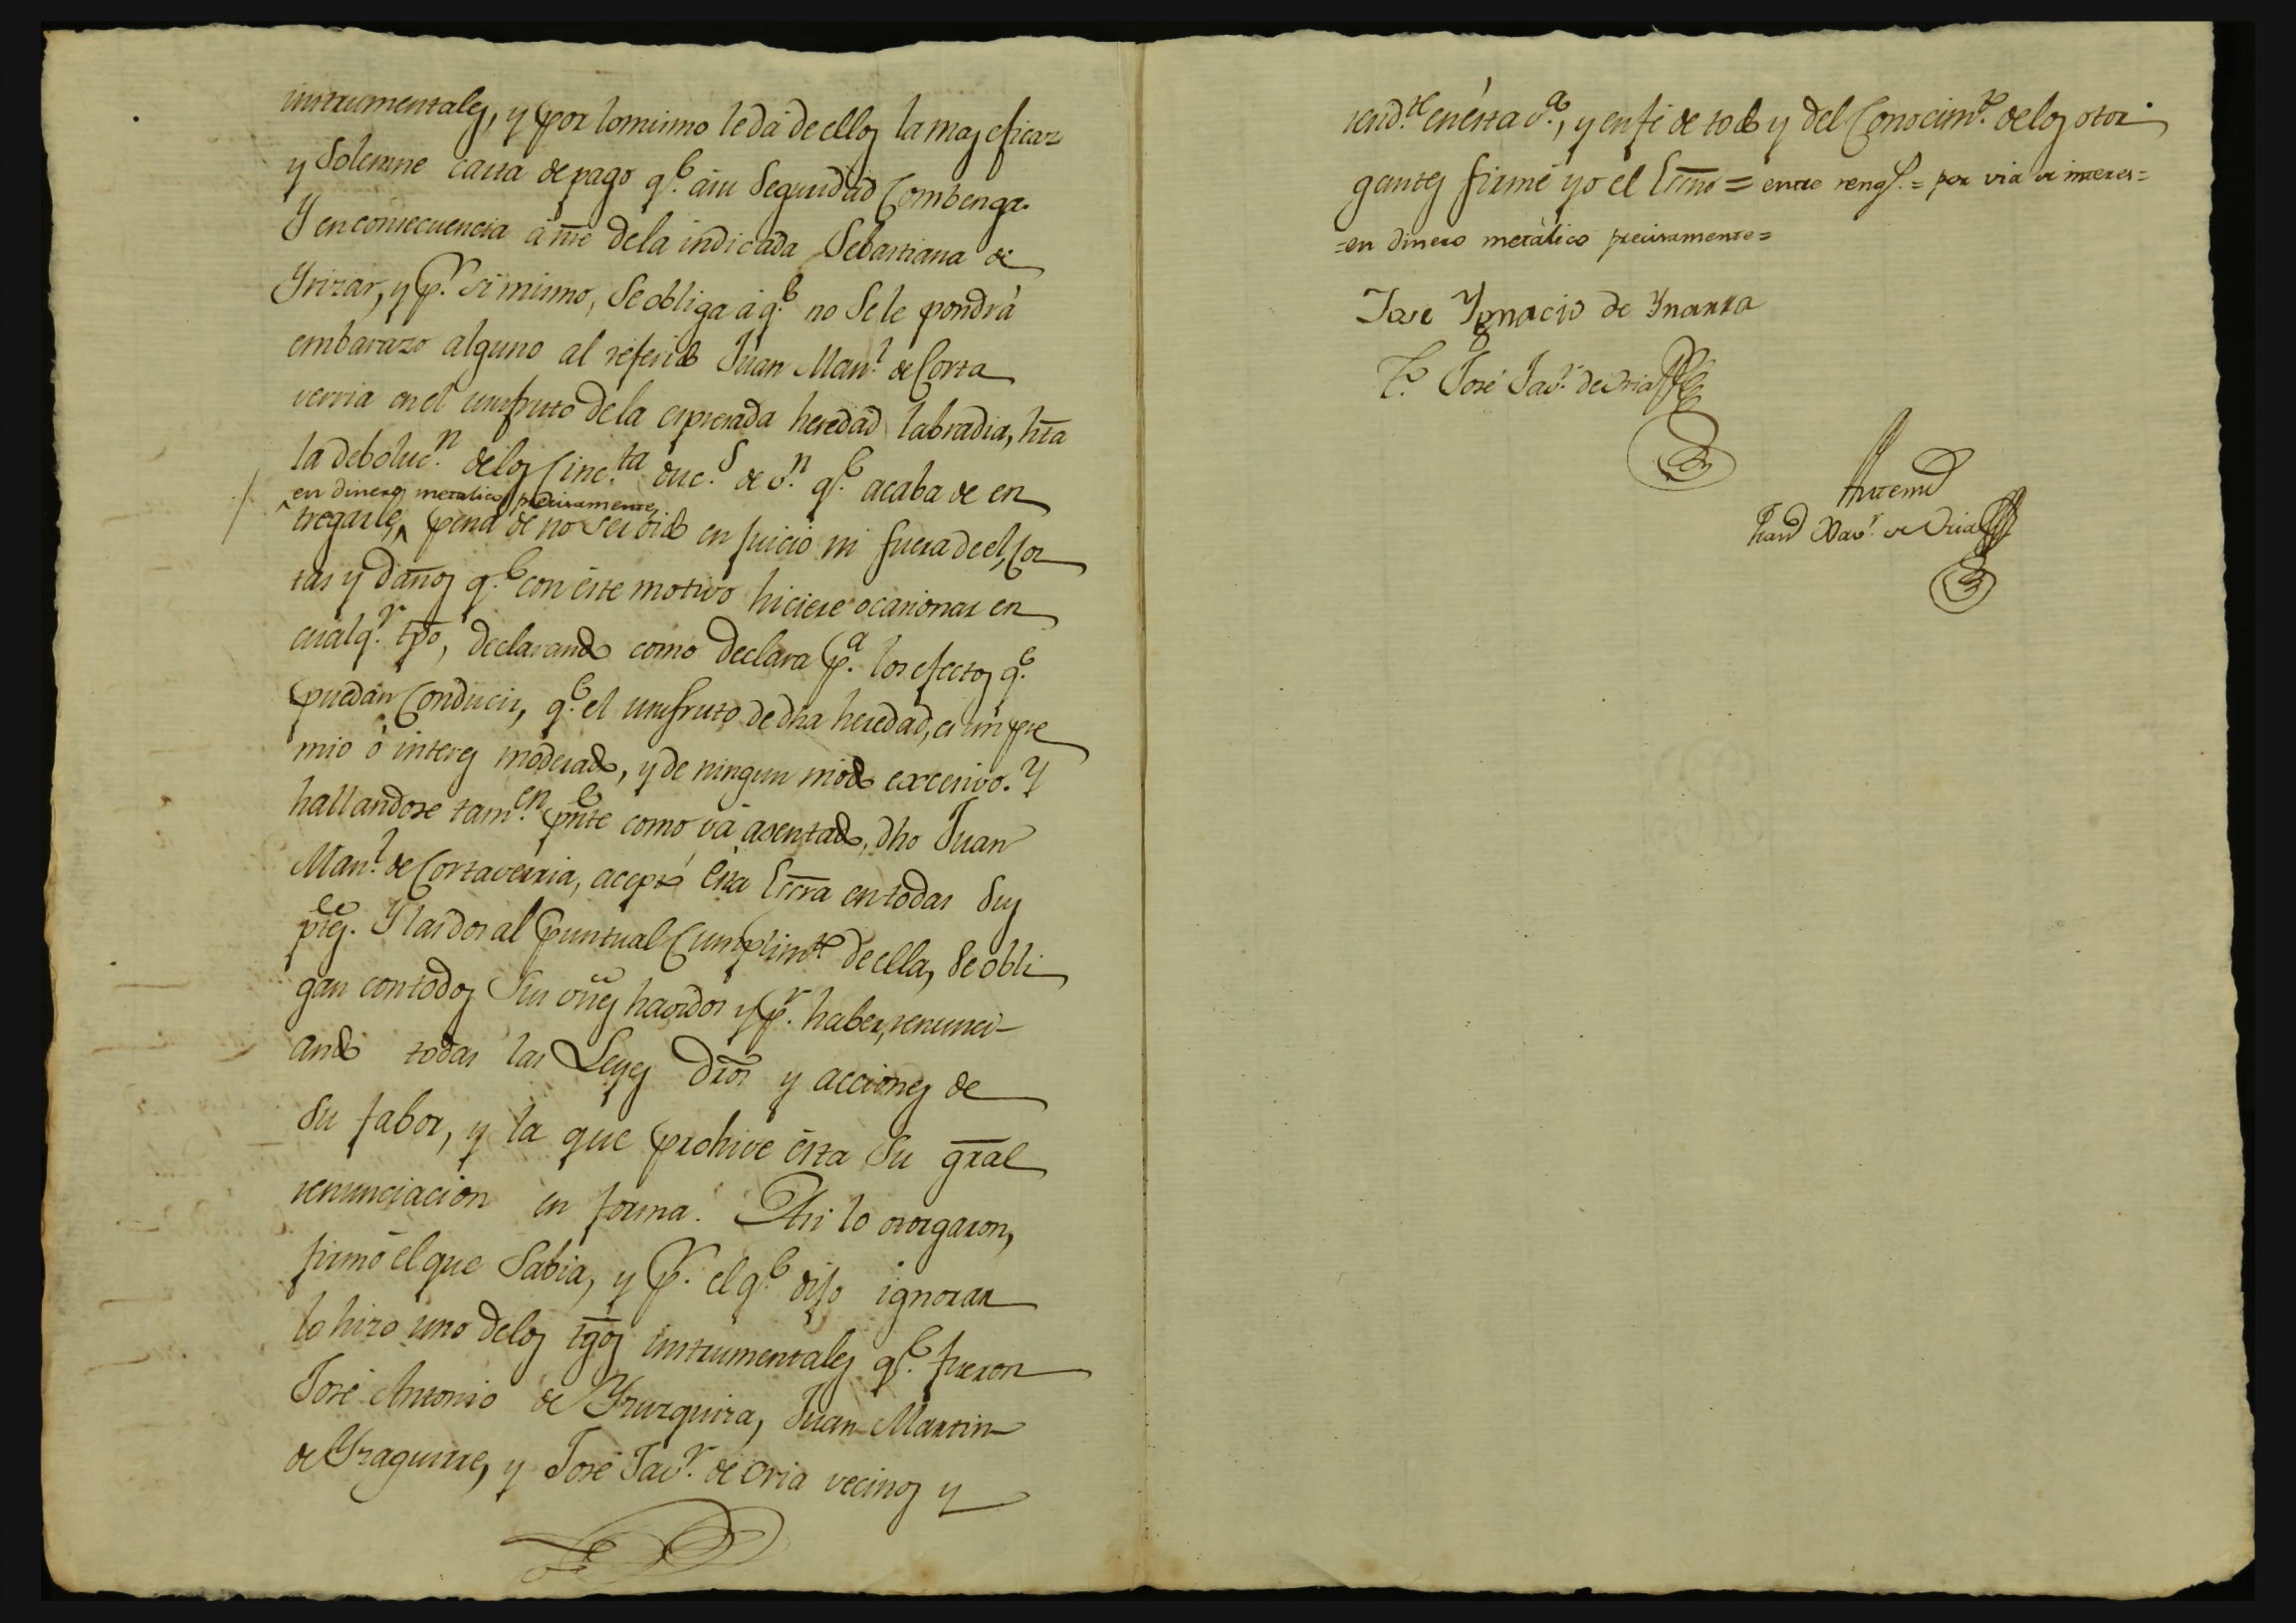 instrumentales, y por lo mismo le dá de ellos la mas eficaz
y Solemne carta de pago q.e á su Seguridad Combenga.
Y en consecuencia á nre dela indicada Sebastiana de
Yrizar, y p.r si mismo, Se obliga á q.e no Se le pondrá
embarazo alguno al referido Juan Man.l de Corta
verria en el usufruto de la expresada heredad labradia, hta
la deboluc.n delos Cinc.ta duc.s de v.n q.e acaba de en
en dinero metalico precisamente
tregarle, pena de no ser oido en juicio ni fuera de el, Cos
tas y daños q.e con éste motivo hiciere ocasionar en
cualq.r tpo, declarando como declara p.a los efectos q.e
puedan Conducir, q.e el usufruto de dha heredad, es un pre
mio ó interes moderado, y de ningun modo excesivo. Y
hallandose tam.en pnte como vá asentado, dho Juan
Man.l de Cortaverria, aceptó esta Escra en todas Sus
ptes. Y las dos al puntual Cumplim.to de ella, Se obli
gan con todos Sus vnes havidos y p.r haber, renunci-
ando todas las Leyes Dros y acciones de
Su fabor, y la que prohive ésta Su gral
renunciacion en forma. Asi lo otorgaron,
firmó el que Sabia, y p.r el q.e dijo ignorar
lo hizo uno delos tgos instrumentales q.e fueron
José Antonio de Yruzquiza, Juan Martin
de Yzaguirre, y José Jav.r de Oria vecinos y
resid.tes en ésta v.a, y en fé de todo y del Conocim.to delos otor
gantes firmé yo el Esno = entre rengl.s = por via de interes =
= en dinero metálico precisamente =
Jose Ygnacio de Ynarra
T.o José Jav.r de Oria
Antemi
Fran.co Xav.r de Oria